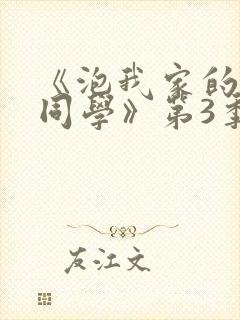 《泡我家的
同學》第3季
友江文